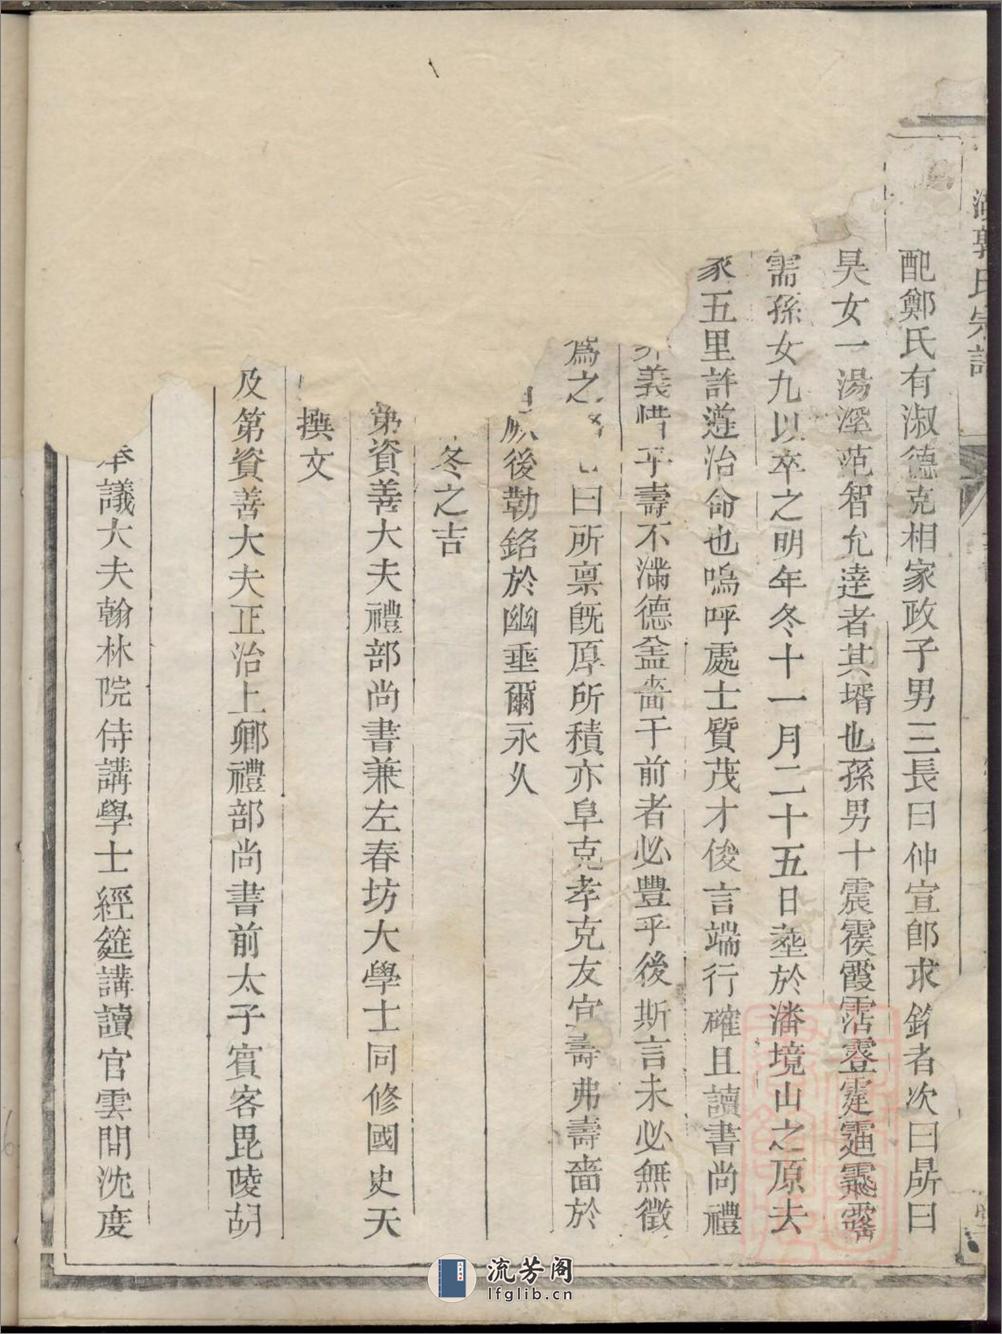 郭氏宗譜
配鄭氏有淑德克相家政子男三長曰仲宣郎求銘者次曰昂曰
昊女一湯溪范智允達者其壻也孫男十震霙霞霑霆霔
需孫女九以卒之明年冬十一月二十五日塟於潘境山之原去
家五里許遵治命也嗚呼處士質茂才俊言端行確且讀書尚禮
義惜乎壽不滿德盖嗇于前者必豐乎後斯言未必無徵
為之曰所稟旣厚所積亦阜克孝克友宜壽弗壽嗇於
厥後勒銘於幽垂爾永久
冬之吉
第資善大夫禮部尚書兼左春坊大學士同修國史天
撰文
及第資善大夫正治上卿禮部尚書前太子賓客毘陵胡
奉議大夫翰林院侍講學士經筵講讀官雲間沈度
流芳阁
lfglib.cn